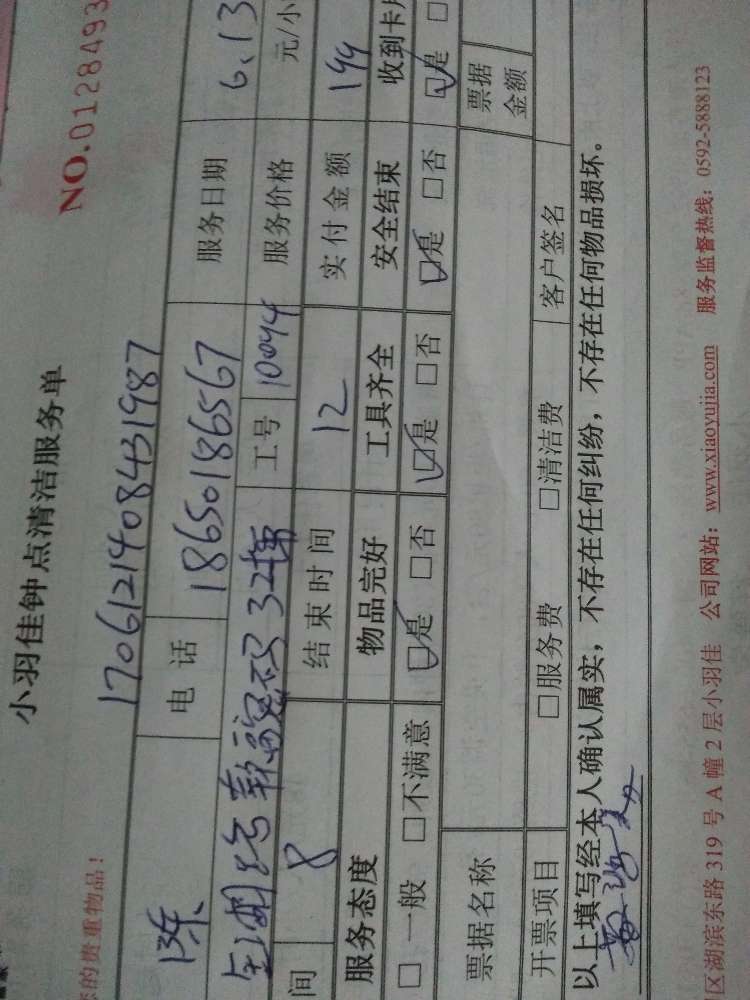 小羽佳钟点清洁服务单
NO.0128493
您的贵重物品！
17061214084431987
陈 电话 18650186567 服务日期 6.13
32栋 工号 10094 服务价格 元/小
间 8 结束时间 12 实付金额 199
服务态度 物品完好 工具齐全 安全结束 收到卡片
□ 一般 □不满意 ☑是 □否 ☑是 □否 ☑是 □否 ☑是 □
票据名称 票据金额
开票项目 □服务费 □清洁费 客户签名
以上填写经本人确认属实，不存在任何纠纷，不存在任何物品损坏。
区湖滨东路 319 号 A 幢 2 层小羽佳 公司网站：www.xiaoyujia.com 服务监督热线：0592-5888123